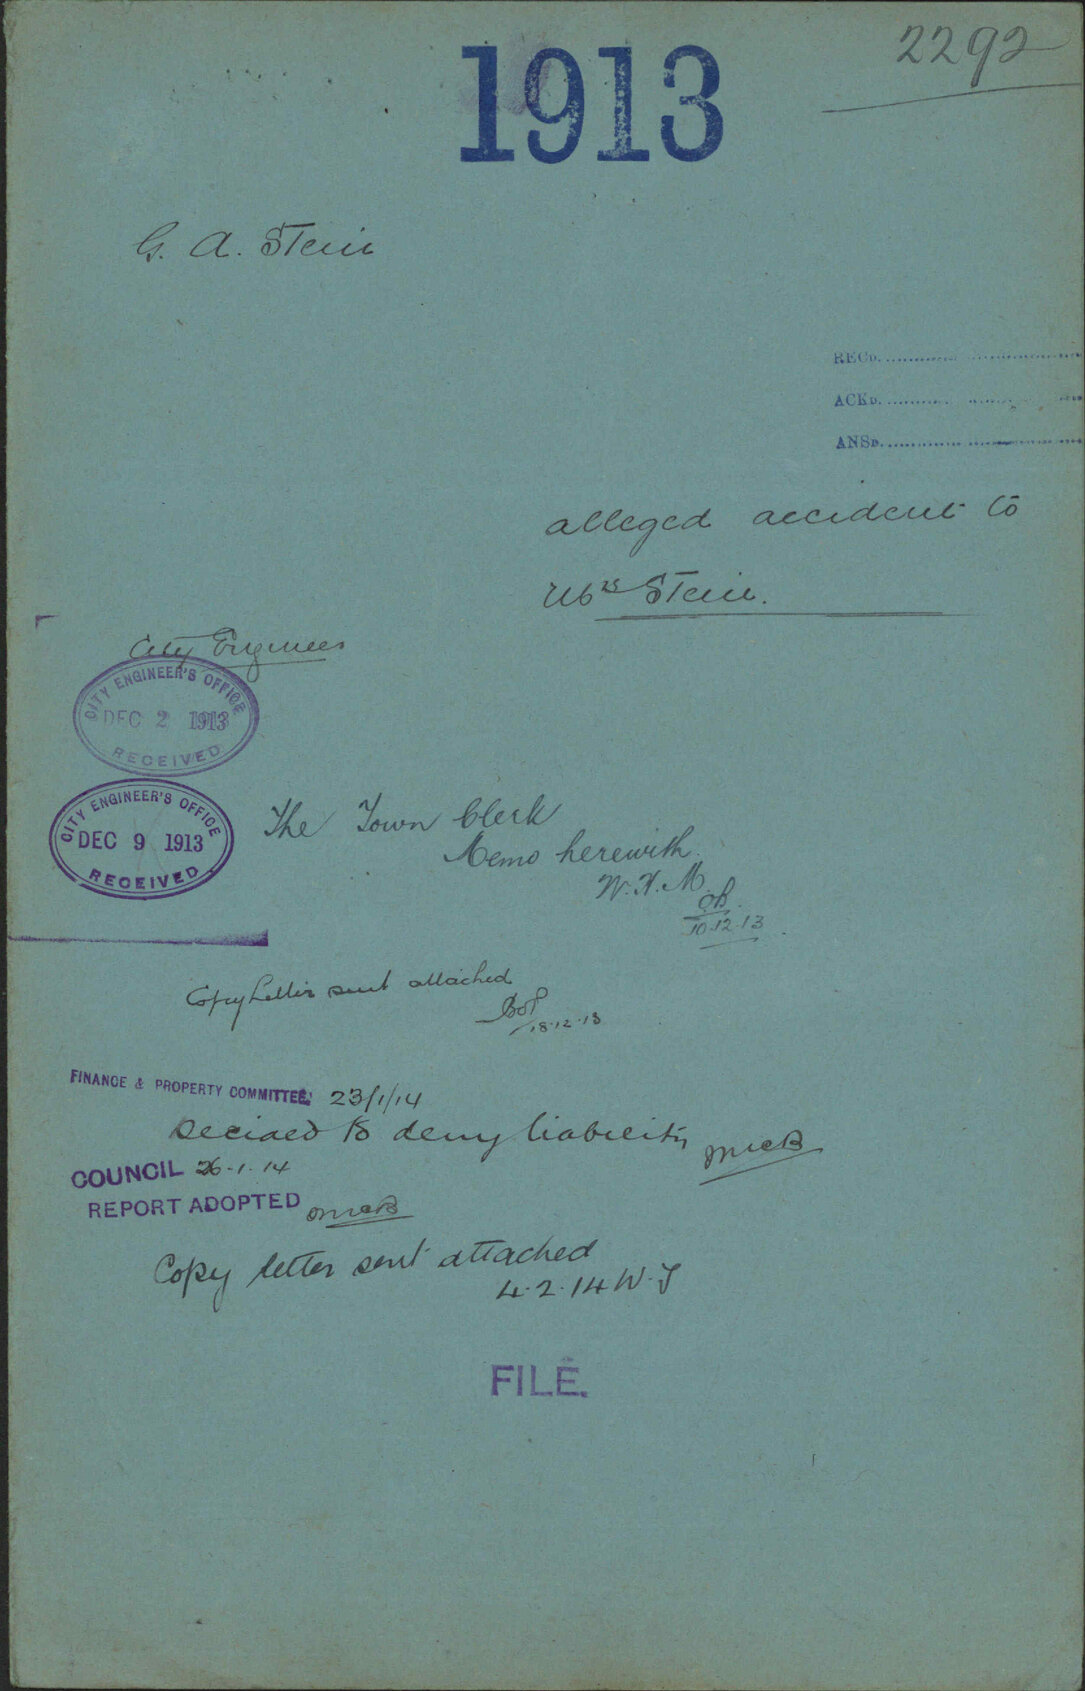 2292
1913
G. A. Stein
RECD.
ACKD.
ANSD.
alleged accident to
Mrs Stein.
City Engineer
CITY ENGINEER'S OFFICE
DEC 2 1913
RECEIVED
CITY ENGINEER'S OFFICE
DEC 9 1913
RECEIVED
The Town Clerk
Memo herewith.
W. H. M.
10.12.13
Copy letter sent attached
18.12.13
FINANCE & PROPERTY COMMITTEE. 23/1/14
Decided to deny liability
COUNCIL 26.1.14
REPORT ADOPTED
Copy letter sent attached
4.2.14 W.J
FILE.